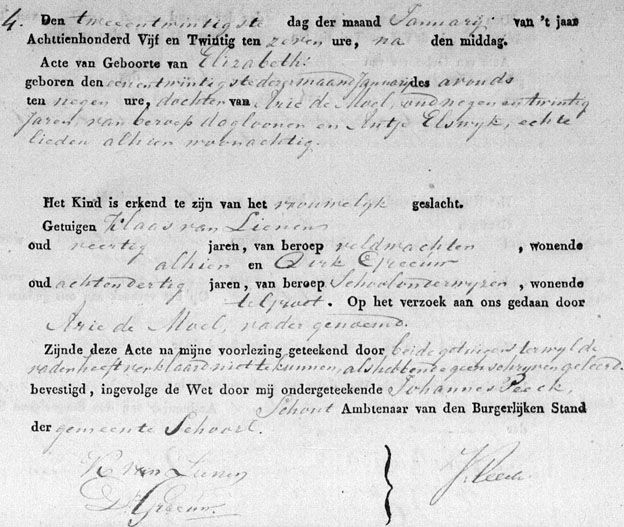 4. Den tweeentwintigste dag der maand Januarij van 't jaar
Achttienhonderd Vijf en Twintig ten zeven ure, na den middag.
Acte van Geboorte van Elizabeth:
geboren den eenentwintigste dezer maand Januarij des avonds
ten negen ure, dochter van Arie de Moel, oud negen en twintig
Jaren, van beroep daglooner en Antje Elswyk, echte
lieden alhier woonachtig.
Het Kind is erkend te zijn van het vrouwelyk geslacht.
Getuigen Klaas van Lienen
oud veertig jaren, van beroep veldwachter, wonende
alhier en Dirk Greeuw
oud achtendertig jaren, van beroep Schoolonderwyzer, wonende
te Groot. Op het verzoek aan ons gedaan door
Arie de Moel, vader genoemd.
Zijnde deze Acte na mijne voorlezing geteekend door beide getuigen, terwyl de
vader heeft verklaard niet te kunnen, als hebbende geen schryven geleerd.
bevestigd, ingevolge de Wet door mij ondergeteekende Johannes Peeck,
Schout Ambtenaar van den Burgerlijken Stand
der gemeente Schoorl.
K van Lienen
D. Greeuw
J. Peeck